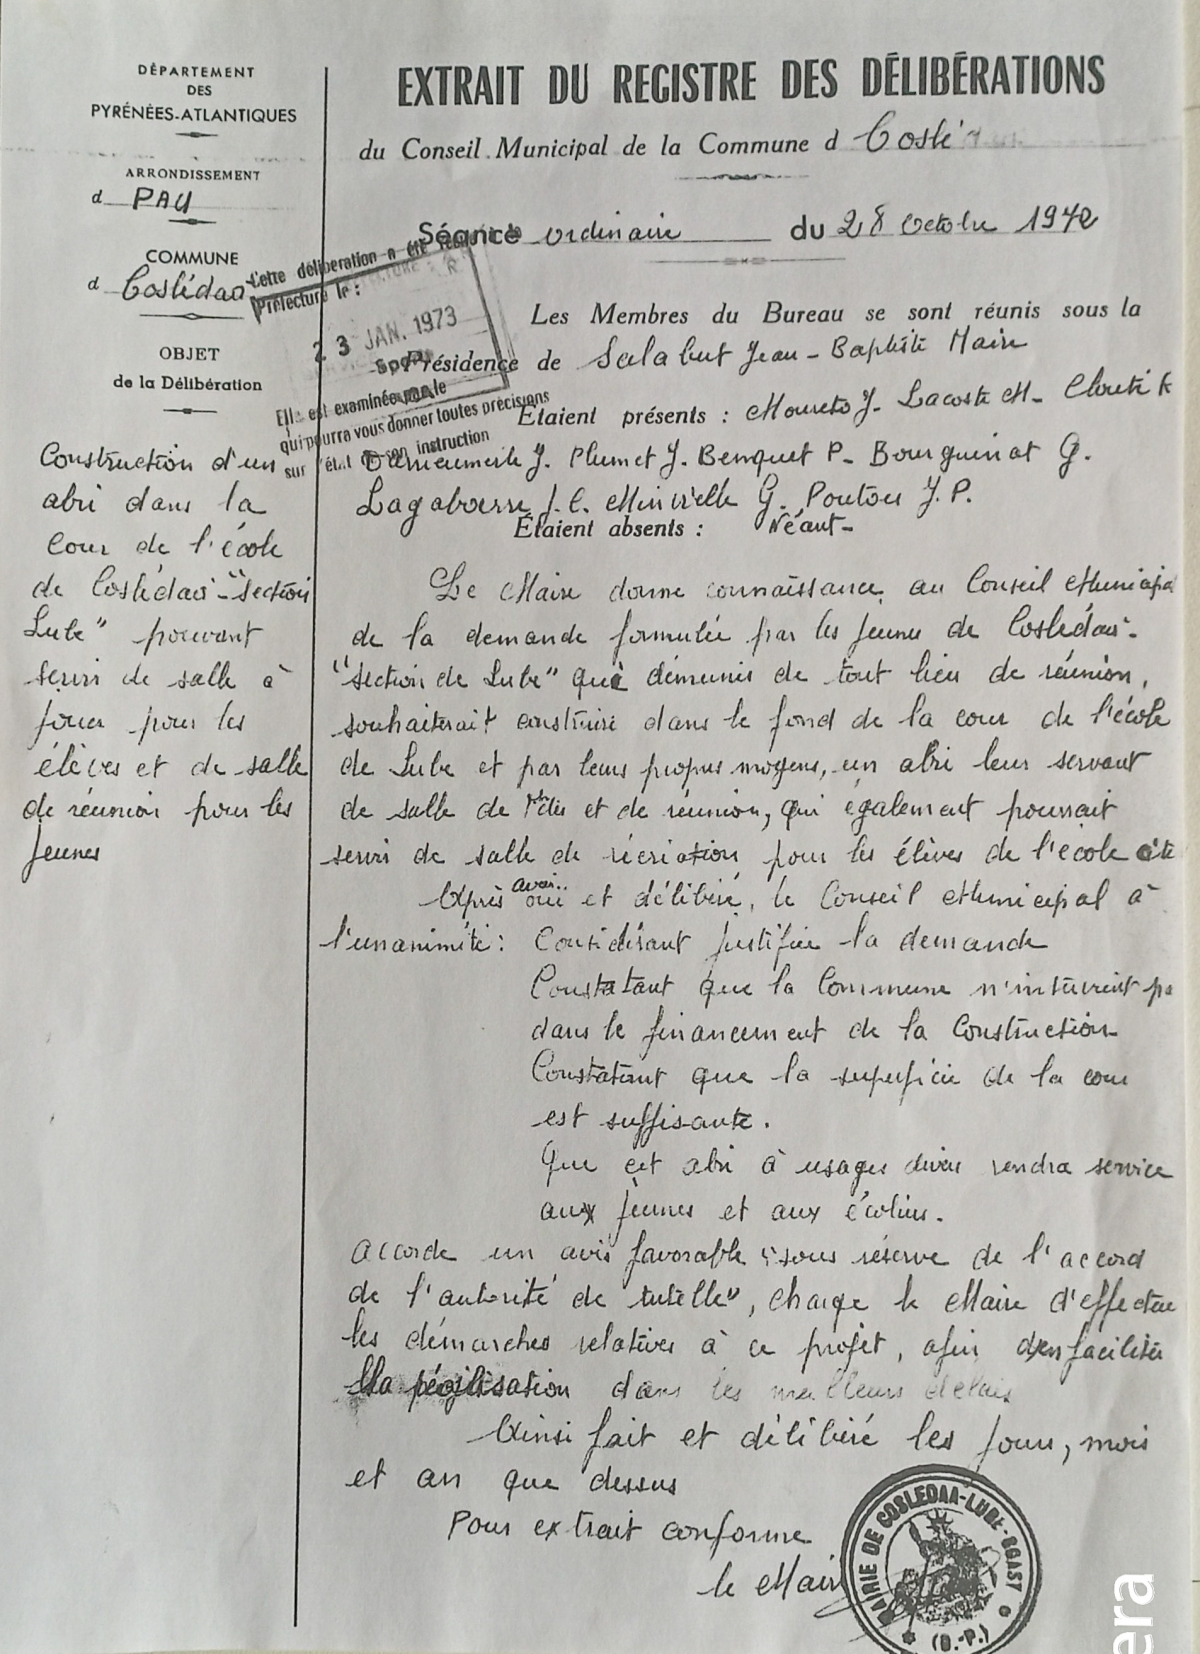 DÉPARTEMENT
DES
PYRÉNÉES-ATLANTIQUES
ARRONDISSEMENT
d PAU
COMMUNE
d Coslédaà
OBJET
de la Délibération
Construction d'un
abri dans la
Cour de l'école
de Coslédaà - "Section
Lube" pouvant
servir de salle à
jouer pour les
élèves et de salle
de réunion pour les
jeunes
EXTRAIT DU REGISTRE DES DÉLIBÉRATIONS
du Conseil Municipal de la Commune d Coslé
Séance ordinaire du 28 Octobre 1972
Cette délibération a été
Préfecture le :
23 JAN. 1973
Elle est examinée par le
qui pourra vous donner toutes précisions
sur l'état de son instruction
Les Membres du Bureau se sont réunis sous la
Présidence de Salabut Jean-Baptiste Maire
Étaient présents : Moureto J. Lacoste M-
J. Plumet J. Benquet P- Bourguinat G.
J. C. Minvielle G. Poutou J. P.
Étaient absents : Néant-
Le Maire donne connaissance au Conseil Municipa
de la demande formulée par les jeunes de Coslédaà-
"Section de Lube" qui démunis de tout lieu de réunion,
souhaiterait construire dans le fond de la cour de l'école
de Lube et par leurs propres moyens, un abri leur servant
de salle de fêtes et de réunion, qui également pourrait
servir de salle de récréation pour les élèves de l'école
Après avoir ouï et délibéré, le Conseil Municipal à
l'unanimité : Considérant justifiée la demande
Constatant que la Commune n'intervient pa
dans le financement de la Construction
Constatant que la superficie de la cour
est suffisante.
Que cet abri à usages divers rendra service
aux jeunes et aux écoliers.
accorde un avis favorable "sous réserve de l'accord
de l'autorité de tutelle", charge le Maire d'effectuer
les démarches relatives à ce projet, afin d'en faciliter
la réalisation dans les meilleurs délais
Ainsi fait et délibéré les jour, mois
et an que dessus
Pour extrait conforme
le Maire
MAIRIE DE COSLEDAA-LUBE-BOAST
(B.-P.)
era